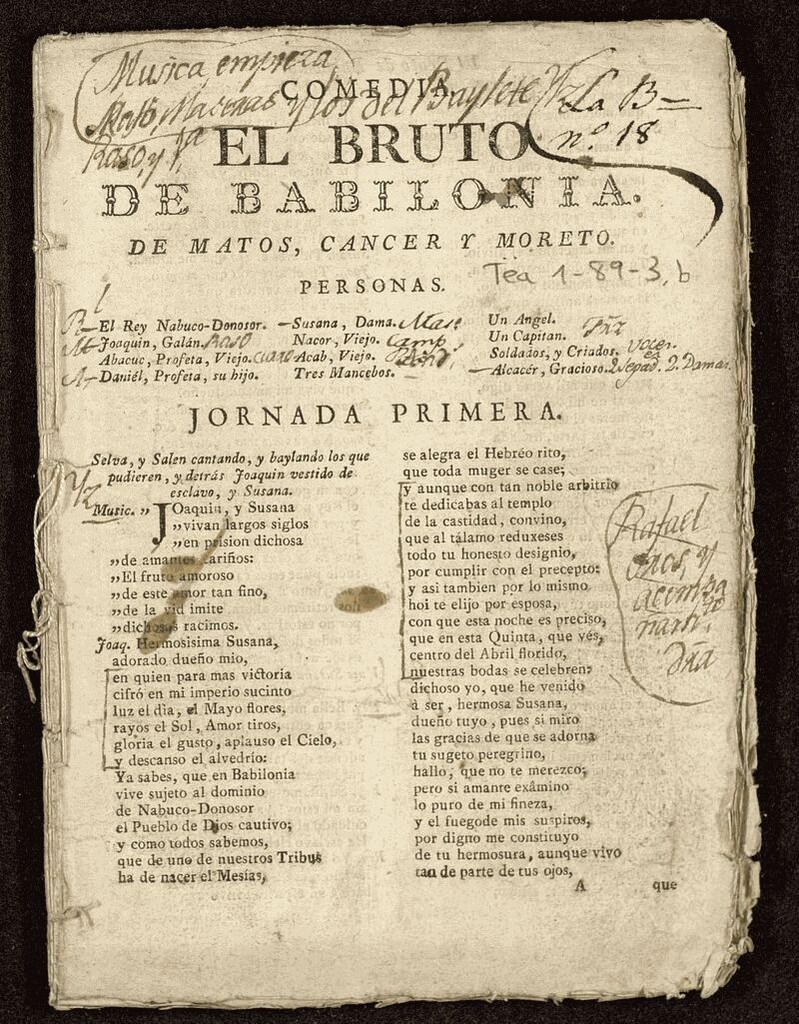 Musica, empieza
COMEDIA.
Raso, y
La B
nº. 18
EL BRUTO
DE BABILONIA.
DE MATOS, CANCER Y MORETO.
Tea 1-89-3, b
PERSONAS.
El Rey Nabuco-Donosor.
Joaquin, Galán. Raso
Abacuc, Profeta, Viejo.
Daniél, Profeta, su hijo.
Susana, Dama.
Nacor, Viejo. Camp
Acab, Viejo.
Tres Mancebos.
Un Angel.
Un Capitan.
Soldados, y Criados.
Alcacér, Gracioso. 2. Damas.
JORNADA PRIMERA.
Selva, y Salen cantando, y baylando los que
pudieren, y detrás Joaquin vestido de
esclavo, y Susana.
Music. „ JOaquin, y Susana
„ vivan largos siglos
„ en prision dichosa
„ de amantes cariños:
„ El fruto amoroso
„ de este amor tan fino,
„ de la vid imite
„ dichosos racimos.
Joaq. Hermosisima Susana,
adorado dueño mio,
en quien para mas victoria
cifró en mi imperio sucinto
luz el dia, el Mayo flores,
rayos el Sol, Amor tiros,
gloria el gusto, aplauso el Cielo,
y descanso el alvedrio:
Ya sabes, que en Babilonia
vive sujeto al dominio
de Nabuco-Donosor
el Pueblo de Dios cautivo;
y como todos sabemos,
que de uno de nuestros Tribus
ha de nacer el Mesías,
se alegra el Hebréo rito,
que toda muger se case;
y aunque con tan noble arbitrio
te dedicabas al templo
de la castidad, convino,
que al tálamo reduxeses
todo tu honesto designio,
por cumplir con el precepto:
y asi tambien por lo mismo
hoi te elijo por esposa,
con que esta noche es preciso,
que en esta Quinta, que vés,
centro del Abril florido,
nuestras bodas se celebren:
dichoso yo, que he venido
á ser, hermosa Susana,
dueño tuyo, pues si miro
las gracias de que se adorna
tu sugeto peregrino,
hallo, que no te merezco;
pero si amante exâmino
lo puro de mi fineza,
y el fuegode mis suspiros,
por digno me constituyo
de tu hermosura, aunque vivo
tan de parte de tus ojos,
A que
Rafael